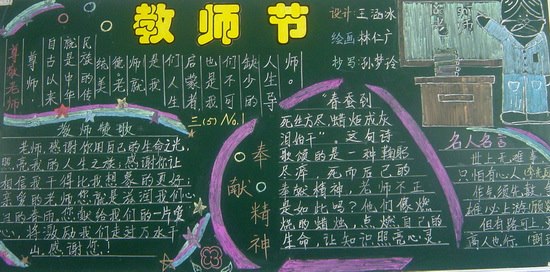 教师节
设计:王涵冰
绘画:林仁广
抄写:孙梦玲
尊敬老师
尊师,
自古以来
就是中华
民族的传
统美
使师
们就是
我人生
启蒙者
也是我
们不可
缺少的
人生导
师。
三(5)No.1
教师颂歌
老师,感谢你用自己的生命之光,
照亮我的人生之旅;感谢你让
相信我干得比我想象的更好;
亲爱的老师,您就是滋润我们心
田的春雨,您献给我们的一片爱
心,将激励我们走过万水千
山,感谢您!
奉献精神
“春蚕到
死丝方尽,蜡炬成灰
泪始干”。这句诗
歌颂的是一种鞠躬
尽瘁,死而后已的
奉献精神,老师不正
是如此吗?他们像燃
烧的蜡烛,点燃自己的
生命,让知识照亮心灵。
名人名言
世上无难事
只怕有心人
作真须先
雄心上游
但有路可
两人也行。